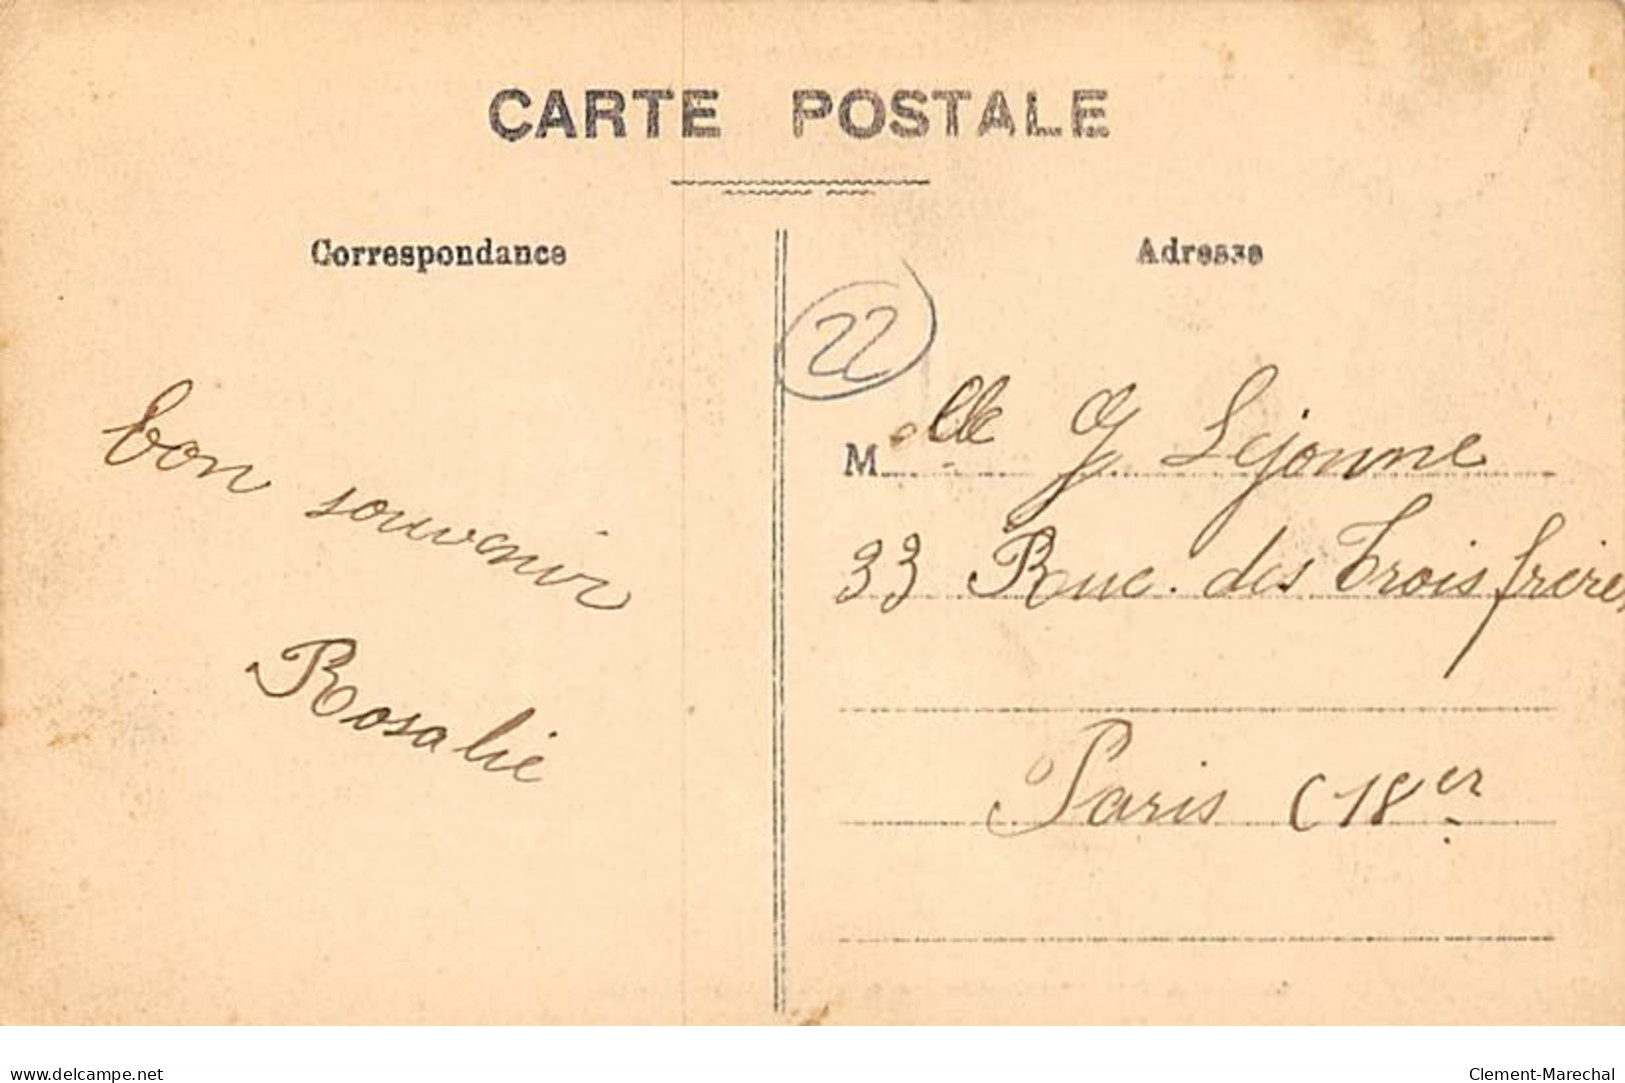 CARTE POSTALE
Correspondance
Adresse
22
bon souvenir
Rosalie
Melle G Lejonne
33 Rue. des Trois frères
Paris (18er
www.delcampe.net
Clement-Marechal